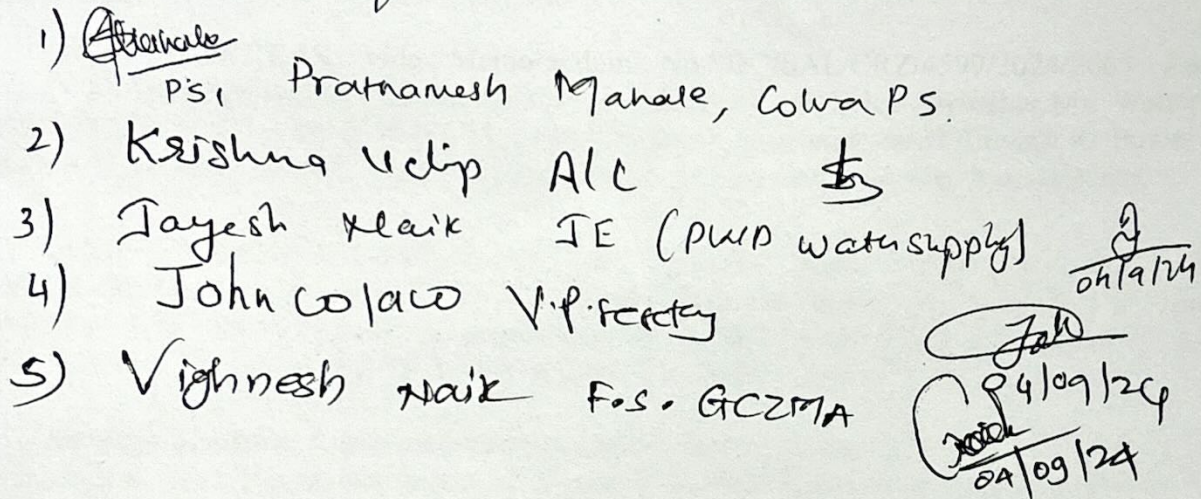 1)
PSI, Prathamesh Mahale, Colva PS.
2) Krishna A/C
3) Jayesh Naik JE (PWD water supply)
04/9/24
4) John Colaco V.P. 
04/09/24
5) Vighnesh Naik F.S. GCZMA
04/09/24